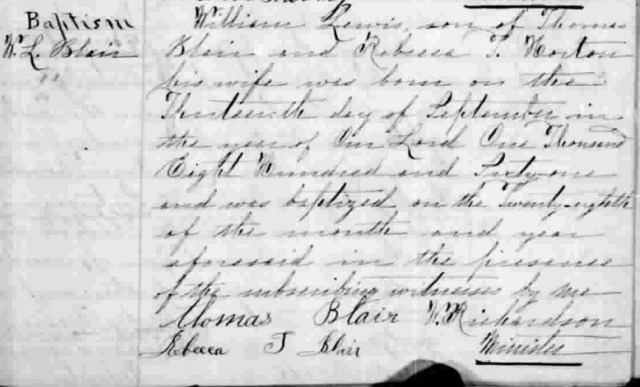 Baptism
Wm. L. Blair
William Lewis, son of Thomas
Blair and Rebecca T. Horton
his wife was born on the
Thirteenth day of September in
the year of Our Lord One Thousand
Eight Hundred and Sixty-one
and was baptized on the Twenty-eighth
of the month and year
aforesaid in the presence
of the subscribing witnesses by me
Thomas Blair W. Richardson
Rebecca T Blair Minister